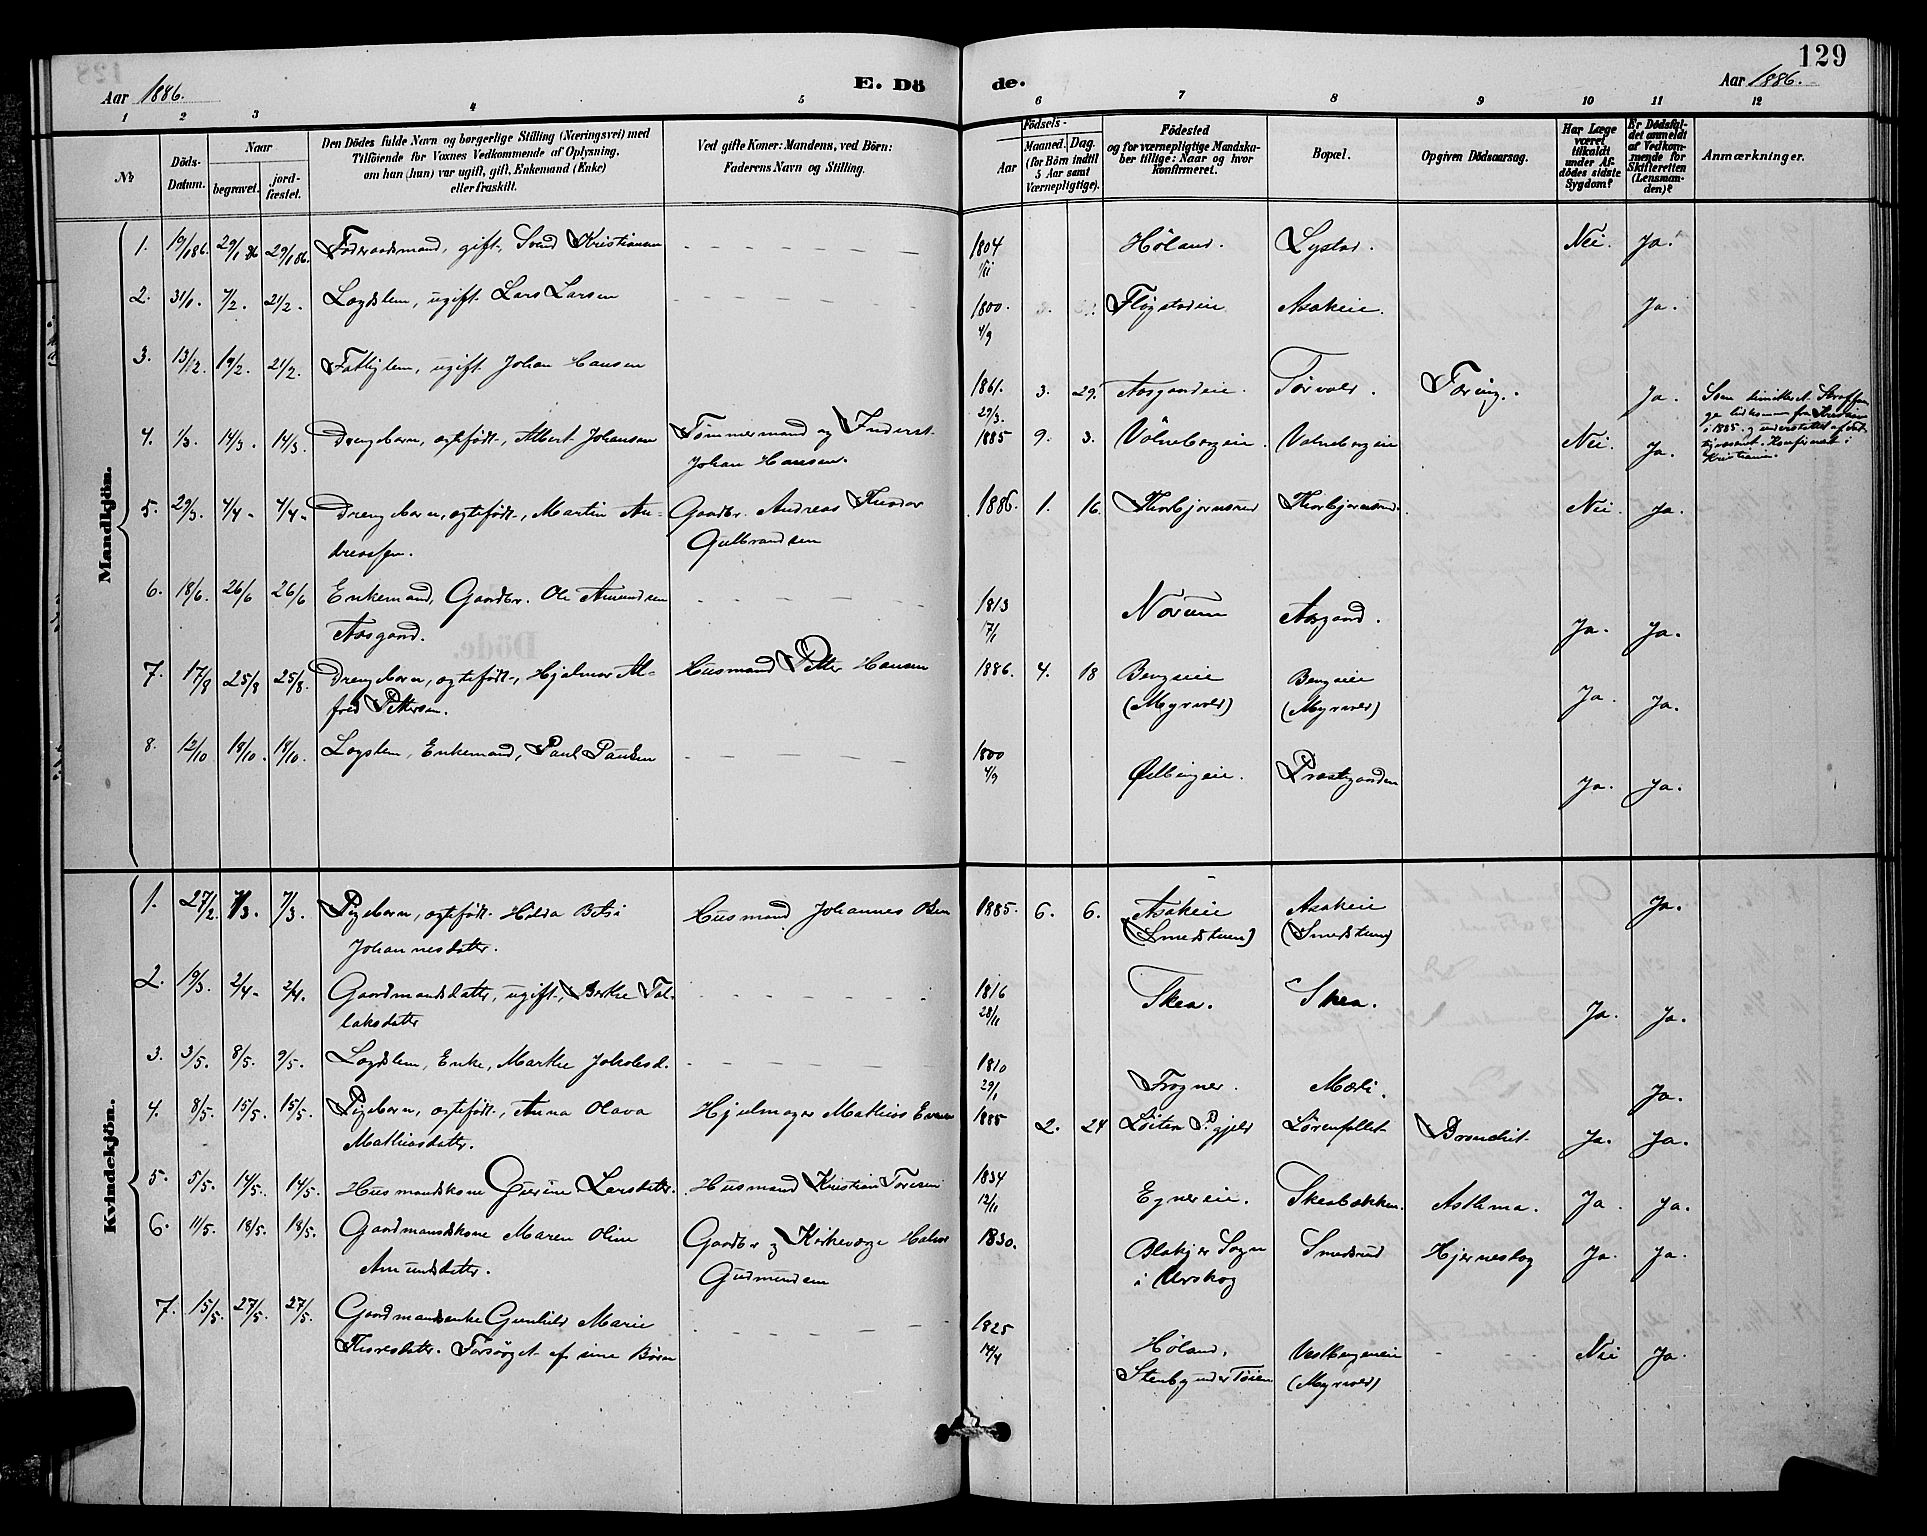 129
Aar 1886.
E. Dö de.
Aar 1886.
1 2 3 4 5 6 7 8 9 10 11 12
№
Döds-
Datum.
Naar
begravet.
jord-
fæstet.
Den Dödes fulde Navn og borgerlige Stilling (Næringsvei) med
Tilföiende for Voxnes Vedkommende af Oplysning,
om han (hun) var ugift, gift, Enkemand (Enke)
eller fraskilt.
Ved gifte Koner: Mandens, ved Börn:
Faderens Navn og Stilling.
Födsels-
Aar
Maaned. Dag.
(for Börn indtil
5 Aar samt
Værnepligtige).
Födested
og for værnepligtige Mandska-
ber tillige: Naar og hvor
konfirmeret.
Bopæl.
Opgiven Dödsaarsag.
Har Læge
været
tilkaldt
under Af-
dödes sidste
Sygdom?
Er Dödsfal-
det anmeldt
af Vedkom-
mende for
Skifteretten
(Lensman-
den)?
Anmærkninger.
Mandkjön.
1. 19/1 86. 29/1 86 29/1 86. Föderaadsmand, gift, Svend Kristiansen - - - - 1804 1/11 Höland. Lystad. Nei. Ja.
2. 31/1. 7/2. 21/2. Logdslem, ugift Lars Larsen - - - - 1800. 4/9 Flögstadeie Asakeie. Ja.
3. 13/2. 19/2. 21/2. Fattiglem, ugift Johan Hansen 1861. 29/3. 3. 29. Aasgaardeie. Törvald. Tæring. Ja.
Som dimitteret Straffan-
ge hidkommen fra Kristiania
i 1885. og understöttet af Fat-
tigvæsenet. Konfirmeret i
Kristiania.
4. 1/3. 14/3. 14/3. Drengebarn, ægtefödt, Albert Johansen Tömmermand og Inderst 1885 9. 3. Volneborgeie. Volneborgeie Nei. Ja.
Johan Hansen.
5. 29/3. 4/4- 4/4- Drengebarn, ægtefödt, Martin An- Gaardbr. Andreas 1886. 1. 16. Thorbjornsrud Thorbjornsrud. Nei. Ja.
dreassen. Gulbrandsen
6. 18/6. 26/6 26/6 Enkemand, Gaardbr. Ole Amundsen - - - - 1813 17/1 Norum Aasgaard. Ja. Ja.
Aasgaard.
7. 17/8 25/8 25/8. Drengebarn, ægtefödt, Hjalmar Al- Husmand Petter Hansen 1886. 4. 18 Bergseie Bergseie Ja. Ja.
fred Pettersen. (Myrvold) (Myrvold)
8. 12/10 18/10. 18/10. Logslem, Enkemand, Paul Paulsen - - - - 1800 4/9 Prestegaarden Ja. Ja.
Kvindekjön.
1. 27/2. 7/3. 7/3. Pigebarn, ægtefödt Hilda Betsi Husmand Johannes Olsen 1885. 6. 6. Asakeie Asakeie Ja.
Johannesdatter. (Smedstuen) (Smedstuen)
2. 19/3. 2/4- 2/4. Gaardmandsdatter, ugift, Berthe Tol- - - - - 1816 28/11 Skea. Skea. Ja. Ja.
laksdatter
3. 3/5. 8/5. 9/5. Logdslem, Enke, Marthe Jakobsd. - - - - 1810 29/1 Frogner. Mæli. Ja.
4. 8/5. 15/5. 15/5. Pigebarn, ægtefödt, Anna Olava Hjulmager Mathias Evensen 1885 2. 24 Löiten Pgjeld Lörenfallet Brondkit Ja. Ja.
Mathiasdatter.
5. 5/5. 14/5. 14/5. Husmandskone Gurine Larsdatter. Husmand Kristian Toresen 1834 12/11 Egnereie. Skeabakken. Asthma. Ja. Ja.
6. 11/5. 18/5. 18/5. Gaardmandskone Maren Oline Gaardbr og Kirkeværge Halvor 1830. Blakjer Sogn Smedsrud Hjerneslag Ja. Ja.
Amundsdatter. Gudmundsen i Urskog
7. 15/5. 27/5. 27/5. Gaardmandsenke Gunhild Marie - - - - 1825 14/4 Höland, Vestbergeneie Nei Ja.
Thoresdatter. Forsörget af sine Börn Stenby under Töien (Myrvold)